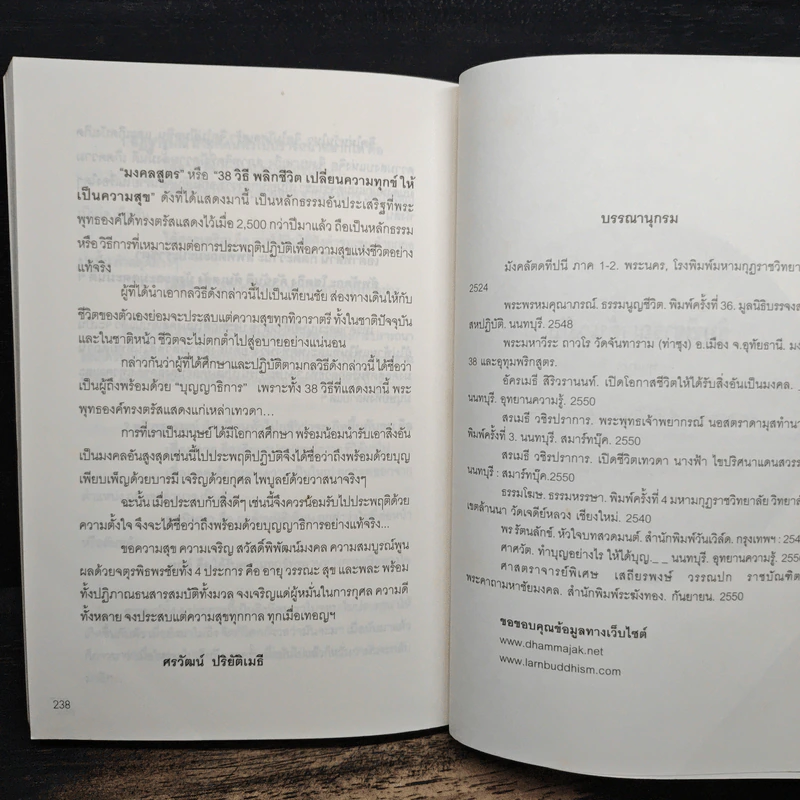 "มงคลสูตร" หรือ "38 วิธี พลิกชีวิต เปลี่ยนความทุกข์ ให้
เป็นความสุข" ดังที่ได้แสดงมานี้ เป็นหลักธรรมอันประเสริฐที่พระ
พุทธองค์ได้ทรงตรัสแสดงไว้เมื่อ 2,500 กว่าปีมาแล้ว ถือเป็นหลักธรรม
หรือ วิธีการที่เหมาะสมต่อการประพฤติปฏิบัติเพื่อความสุขแห่งชีวิตอย่าง
แท้จริง
ผู้ที่ได้นำเอากลวิธีดังกล่าวนี้ไปเป็นเทียนชัย ส่องทางเดินให้กับ
ชีวิตของตัวเองย่อมจะประสบแต่ความสุขทุกทิวาราตรี ทั้งในชาติปัจจุบัน
และในชาติหน้า ชีวิตจะไม่ตกต่ำไปสู่อบายอย่างแน่นอน
กล่าวกันว่าผู้ที่ได้ศึกษาและปฏิบัติตามกลวิธีดังกล่าวนี้ ได้ชื่อว่า
เป็นผู้ถึงพร้อมด้วย "บุญญาธิการ" เพราะทั้ง 38 วิธีที่แสดงมานี้ พระ
พุทธองค์ทรงตรัสแสดงแก่เหล่าเทวดา...
การที่เราเป็นมนุษย์ ได้มีโอกาสศึกษา พร้อมน้อมนำรับเอาสิ่งอัน
เป็นมงคลอันสูงสุดเช่นนี้ไปประพฤติปฏิบัติจึงได้ชื่อว่าถึงพร้อมด้วยบุญ
เพียบเพ็ญด้วยบารมี เจริญด้วยกุศล ไพบูลย์ด้วยวาสนาจริงๆ
ฉะนั้น เมื่อประสบกับสิ่งดีๆ เช่นนี้จึงควรน้อมรับไปประพฤติด้วย
ความตั้งใจ จึงจะได้ชื่อว่าถึงพร้อมด้วยบุญญาธิการอย่างแท้จริง...
ขอความสุข ความเจริญ สวัสดิ์พิพัฒน์มงคล ความสมบูรณ์พูน
ผลด้วยจตุรพิธพรชัยทั้ง 4 ประการ คือ อายุ วรรณะ สุขะ และพละ พร้อม
ทั้งปฏิภาณธนสารสมบัติทั้งมวล จงเจริญแด่ผู้หมั่นในการกุศล ความดี
ทั้งหลาย จงประสบแต่ความสุขทุกกาล ทุกเมื่อเทอญฯ
ศรวัฒน์ ปริยัติเมธี
238
บรรณานุกรม
มังคลัตถทีปนี ภาค 1-2. พระนคร, โรงพิมพ์มหามกุฏราชวิทยา
2524
พระพรหมคุณาภรณ์. ธรรมนูญชีวิต. พิมพ์ครั้งที่ 36. มูลนิธิบรรจงส
สหปฏิบัติ. นนทบุรี. 2548
พระมหาวีระ ถาวโร วัดจันทาราม (ท่าซุง) อ.เมือง จ.อุทัยธานี. มง
38 และอุทุมพริกสูตร.
อัครเมธี สิริวรานนท์. เปิดโอกาสชีวิตให้ได้รับสิ่งอันเป็นมงคล. _
นนทบุรี. อุทยานความรู้. 2550
สรเมธี วชิรปราการ. พระพุทธเจ้าพยากรณ์ นอสตราดามุสทำนา
พิมพ์ครั้งที่ 3. นนทบุรี. สมาร์ทบุ๊ค. 2550
สรเมธี วชิรปราการ. เปิดชีวิตเทวดา นางฟ้า ไขปริศนาแดนสวรร
นนทบุรี : สมาร์ทบุ๊ค.2550
ธรรมโฆษ. ธรรมหรรษา. พิมพ์ครั้งที่ 4 มหามกุฏราชวิทยาลัย วิทยาลั
เขตล้านนา วัดเจดีย์หลวง เชียงใหม่. 2540
พร รัตนลักซ์. หัวใจบทสวดมนต์. สำนักพิมพ์วันเวิล์ด. กรุงเทพฯ : 254
ศาศวัต. ทำบุญอย่างไร ให้ได้บุญ._ _ นนทบุรี. อุทยานความรู้. 255
ศาสตราจารย์พิเศษ เสถียรพงษ์ วรรณปก ราชบัณฑิต
พระคาถามหาชัยมงคล. สำนักพิมพ์ระฆังทอง. กันยายน. 2550
ขอขอบคุณข้อมูลทางเว็บไซต์
www.dhammajak.net
www.larnbuddhism.com